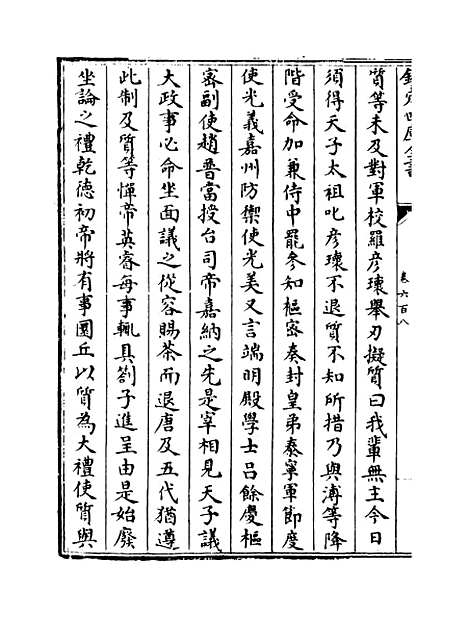 欽定四庫全書
卷六百八
質等未及對軍校羅彦瓌舉刃擬質曰我輩無主今日
須得天子太祖叱彦瓌不退質不知所措乃與溥等降
階受命加兼侍中罷参知樞密奏封皇弟泰寧軍節度
使光義嘉州防禦使光美又言端明殿學士吕餘慶樞
宻副使趙普當授台司帝嘉納之先是宰相見天子議
大政事必命坐面議之從容賜茶而退唐及五代猶遵
此制及質等憚帝英睿每事輒具劄子進呈由是始廢
坐論之禮乾德初帝將有事圜丘以質為大禮使質與